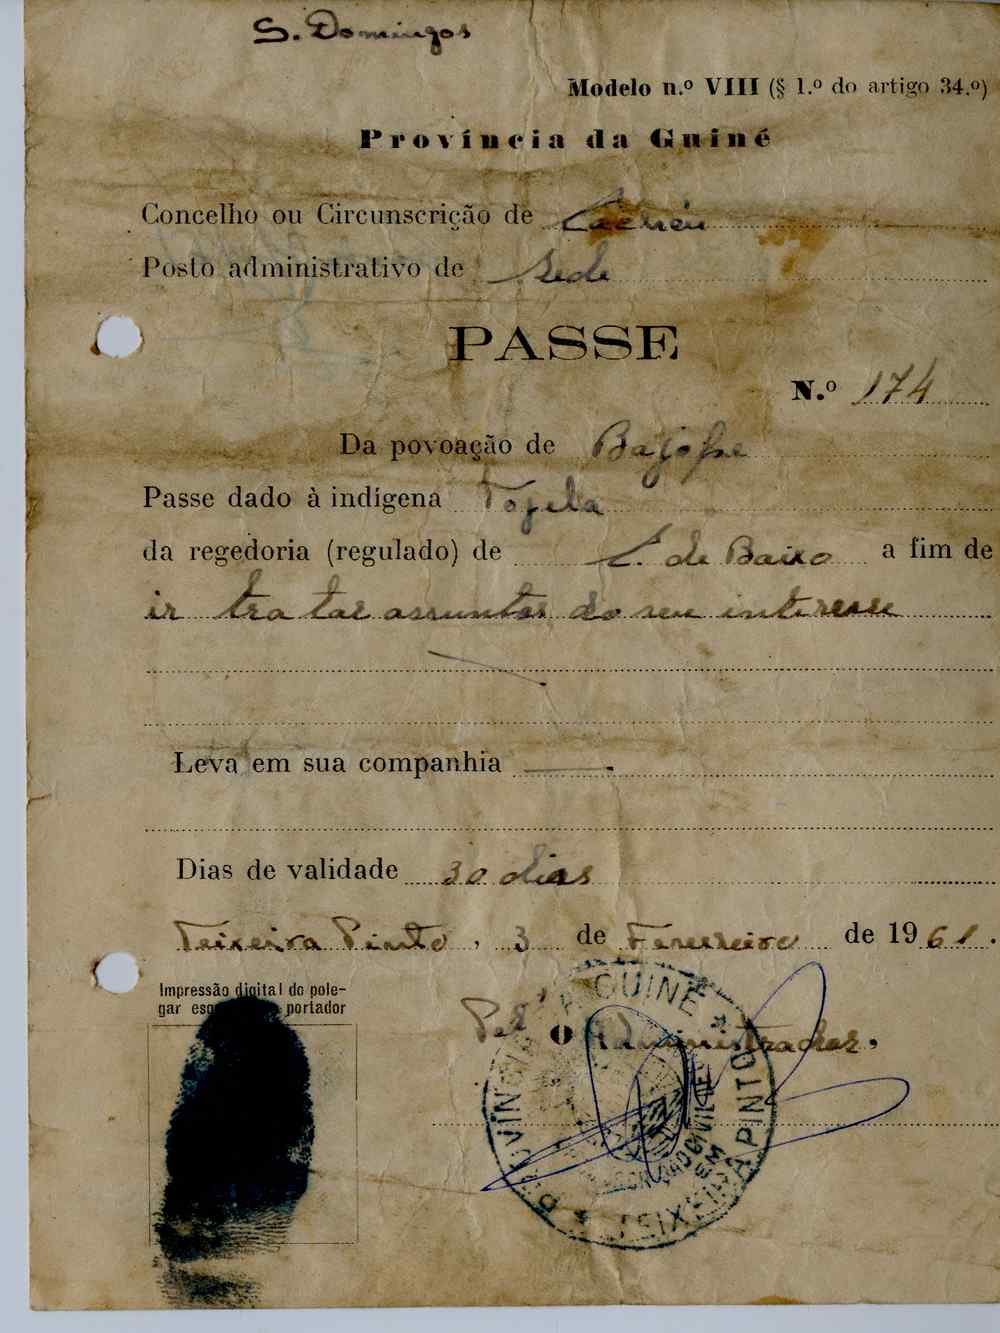 S. Domingos
Modelo n.º VIII (§ 1.º do artigo 34.º)
Província da Guiné
Concelho ou Circunscrição de Cacheu
Posto administrativo de Sede
PASSE
N.º 174
Da povoação de
Passe dado à indígena
da regedoria (regulado) de C. de Baixo a fim de
ir tratar assuntos do seu interesse
Leva em sua companhia
Dias de validade 30 dias
Teixeira Pinto, 3 de Fevereiro de 1961.
Impressão digital do pole-
gar portador
Pel' O Administrador,
GUINÉ
EM
TEIXEIRA PINTO